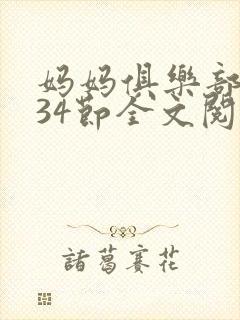 妈妈俱樂部
34节全文阅
諸葛賽花